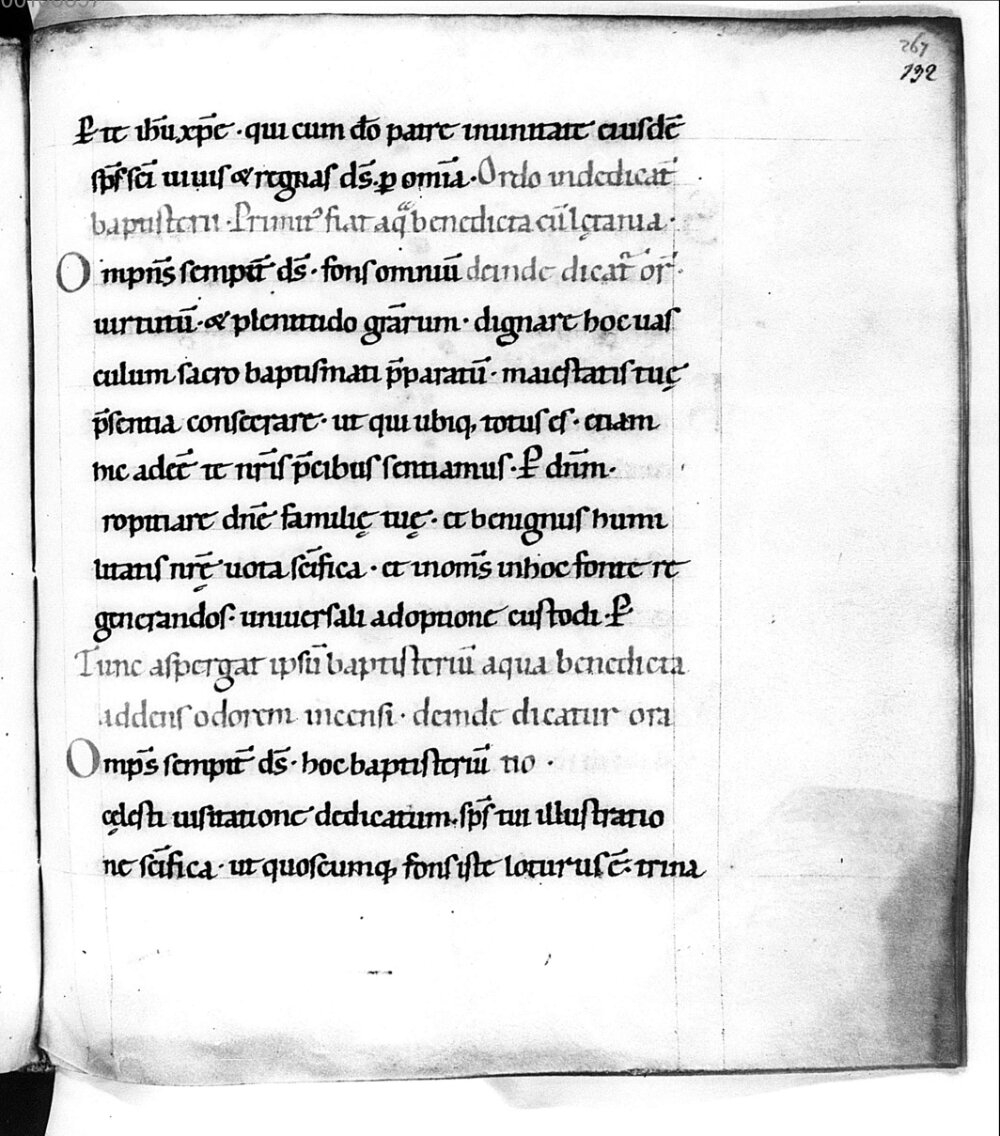 267
132
P̄ te ihū xp̄e · qui cum dō patre inunitate eiusdē
sp̄s sc̄i uiuis & regnas ds̄. ꝑ om̄ia · Ordo indedicat̄
baptisterii · Primitꝰ fiat aqͣ benedicta cū lętania ·
Omp̄ns̄ sempit̄ ds̄ · fons omniū deinde dicat̄ or̄ ·
uirtutū · & plenitudo gr̄arum · dignare hoc uas
culum sacro baptismati p̄paratū · maiestatis tuę
p̄sentia consecrare · ut qui ubiq, totus es · etiam
hic adeē te nr̄is p̄cibus sentiamus · P̄ dn̄m ·
ropitiare dn̄e familię tuę · et benignus humi
litatis nr̄ę uota sc̄ifica · et inom̄s inhoc fonte re
generandos · uniuersali adoptione custodi · P̄
Tunc aspergat ipsū baptisteriū aqua benedicta
addens odorem incensi · deinde dicatur ora
Omp̄s sempit̄ ds̄ · hoc baptisteriū tio ·
cęlesti uisitatione dedicatum · sp̄s tui illustratio
ne sc̄ifica · ut quoscumq, fons iste loturus ē · trina